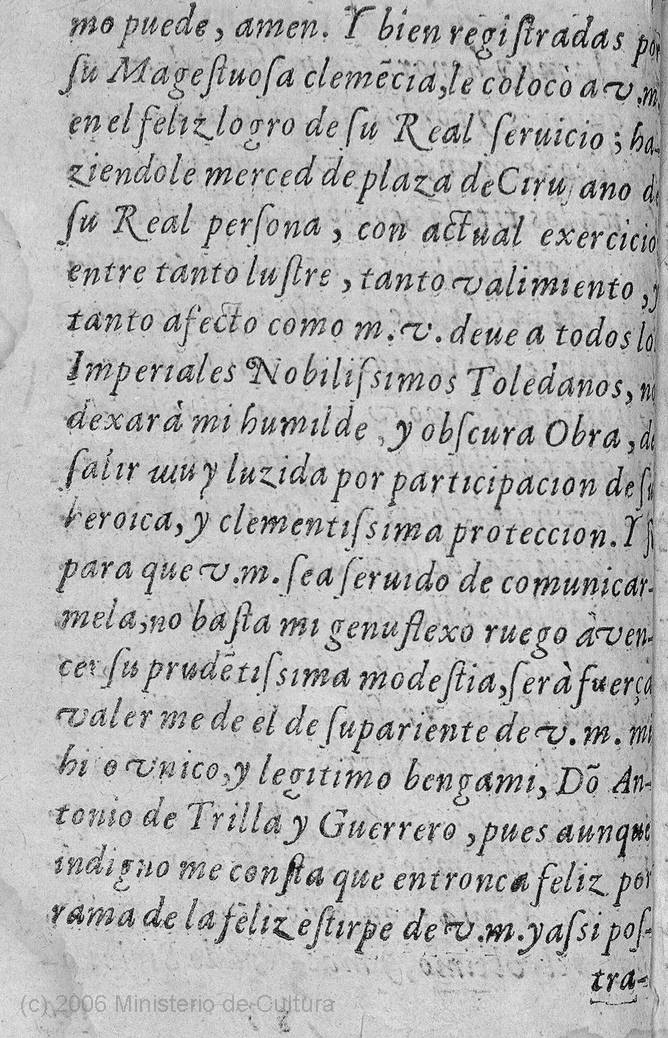 mo puede, amen. Y bien regiſtradas por
ſu Mageſtuoſa clemẽcia, le colocò a v.m.
en el feliz logro de ſu Real ſeruicio; ha-
ziendole merced de plaza de Ciru ano de
ſu Real perſona, con actual exercicio
entre tanto luſtre, tanto valimiento, y
tanto afecto como m. v. deue a todos lo
Imperiales Nobiliſsimos Toledanos, no
dexarà mi humilde, y obſcura Obra, de
ſalir muy luzida por participacion de ſu
heroica, y clementiſsima proteccion. Y ſi
para que v.m. ſea ſeruido de comunicar-
mela, no baſta mi genuflexo ruego à ven-
cer ſu prudẽtiſsima modeſtia, ſerà fuerça
valer me de el de ſu pariente de v. m. mi
hi o vnico, y legitimo bengami, Dõ An-
tonio de Trilla y Guerrero, pues aunque
indigno me conſta que entronca feliz por
rama de la feliz eſtirpe de v.m. y aſsi poſ-
tra-
(c) 2006 Ministerio de Cultura